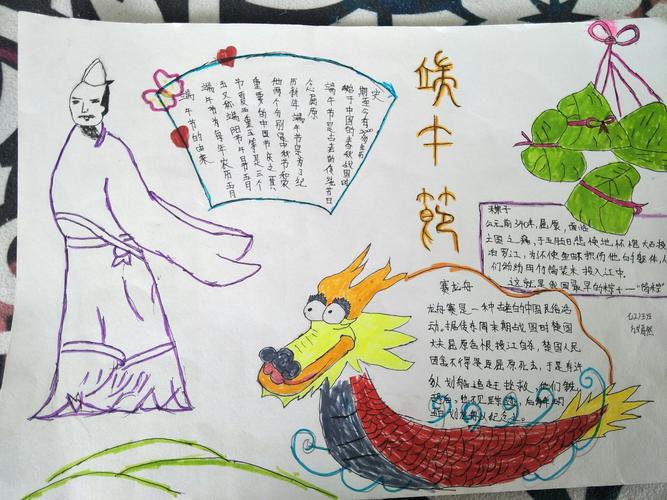 端午節
端午节的由来
端午节为每年农历五月
五又称端阳节午日节五月
节夏五重五等是三个
重要的中国节庆之其
他两个分别是中秋节和农
历新年 端午节是为了纪
念屈原
端午节是古老的传统节日
始于中国的春秋战国时
期至今有2000多年历
史
粽子
公元前340年,屈原,面临
亡国之痛,于五月五日悲愤地,怀抱大石投
汨罗江,为不使鱼虾损伤他的躯体,人
们纷纷用竹筒装米投入江中.
这就是我国最早的粽子—"筒粽"
赛龙舟
龙舟赛是一种古老的中国民俗活
动。据传在周末期战国时楚国
大夫屈原含恨投江自尽,楚国人民
因舍不得贤臣屈原死去,于是有许
多人划船追赶拯救,他们争先
恐后,
划龙舟以纪念之。